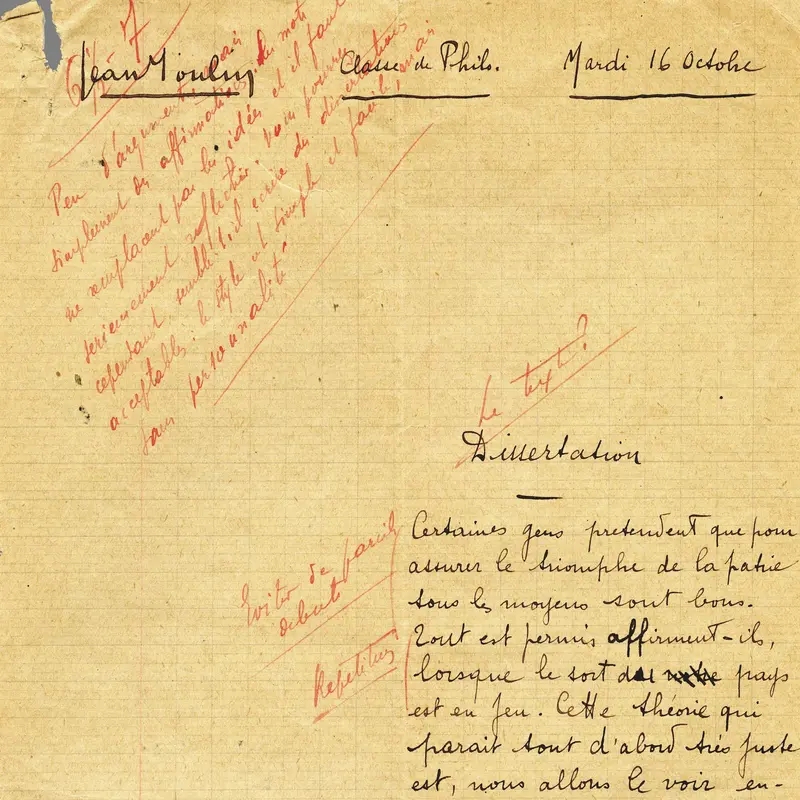 7
Jean Moulin
Classe de Philo.
Mardi 16 Octobre
Peu d'arguments mais
simplement des affirmations, des mots
ne remplacent pas les idées et il faut
sérieusement réfléchir, vous pourrez
cependant, semble-t-il écrire des dissertations
acceptables : le style est simple et facile, mais
sans personnalité
Le texte?
Dissertation
Certaines gens pretendent que pour
assurer le triomphe de la patrie
tous les moyens sont bons.
Tout est permis affirment-ils,
lorsque le sort du pays
est en jeu. Cette théorie qui
parait tout d'abord très juste
est, nous allons le voir en-
Eviter de pareils
débuts
Répétition